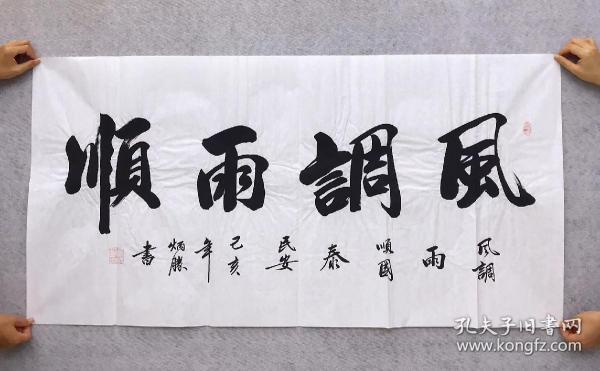 風調雨順
風調雨順國泰民安己亥年炳勝書
孔夫子旧书网
www.kongfz.com